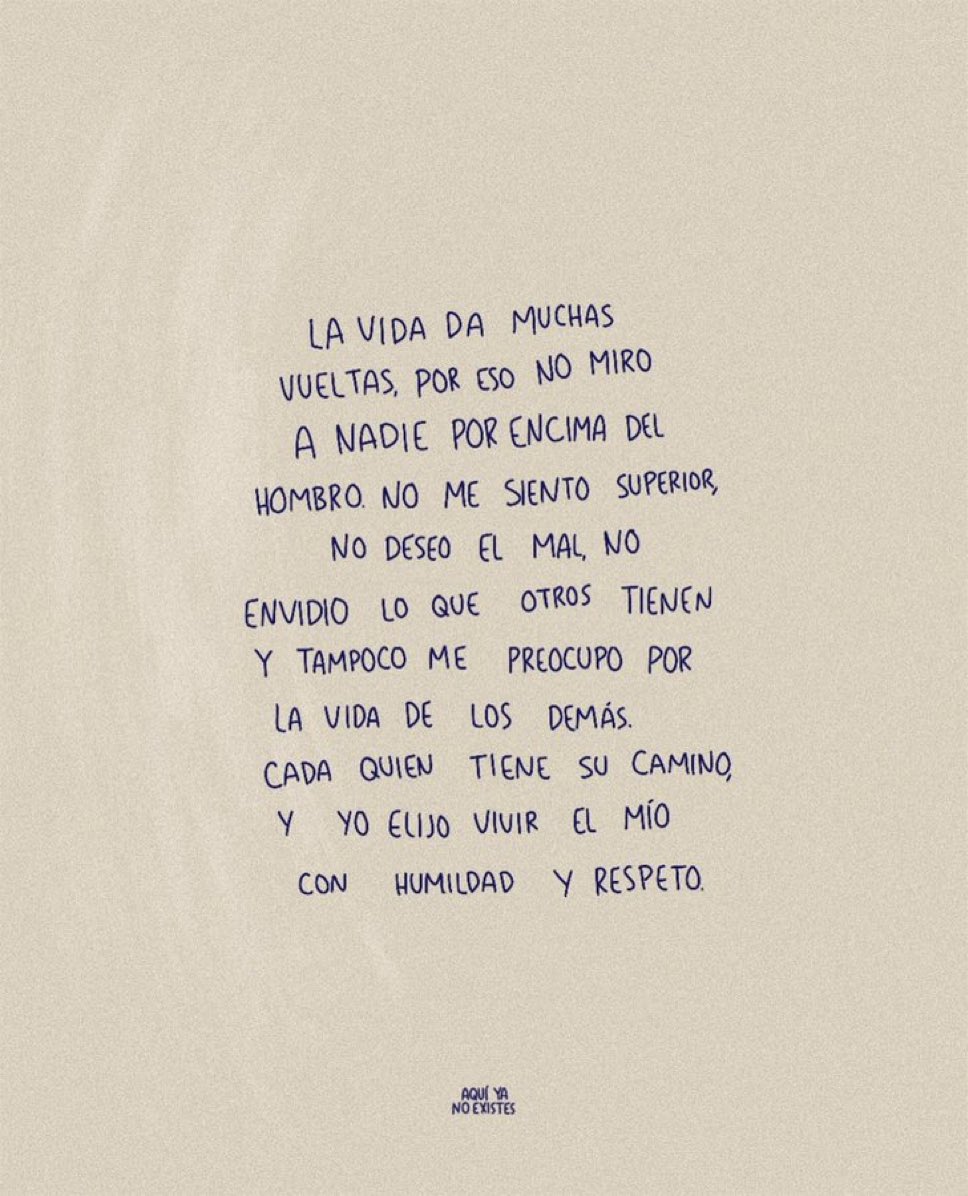 LA VIDA DA MUCHAS
VUELTAS, POR ESO NO MIRO
A NADIE POR ENCIMA DEL
HOMBRO. NO ME SIENTO SUPERIOR,
NO DESEO EL MAL, NO
ENVIDIO LO QUE OTROS TIENEN
Y TAMPOCO ME PREOCUPO POR
LA VIDA DE LOS DEMÁS.
CADA QUIEN TIENE SU CAMINO,
Y YO ELIJO VIVIR EL MÍO
CON HUMILDAD Y RESPETO.
AQUÍ YA
NO EXISTES